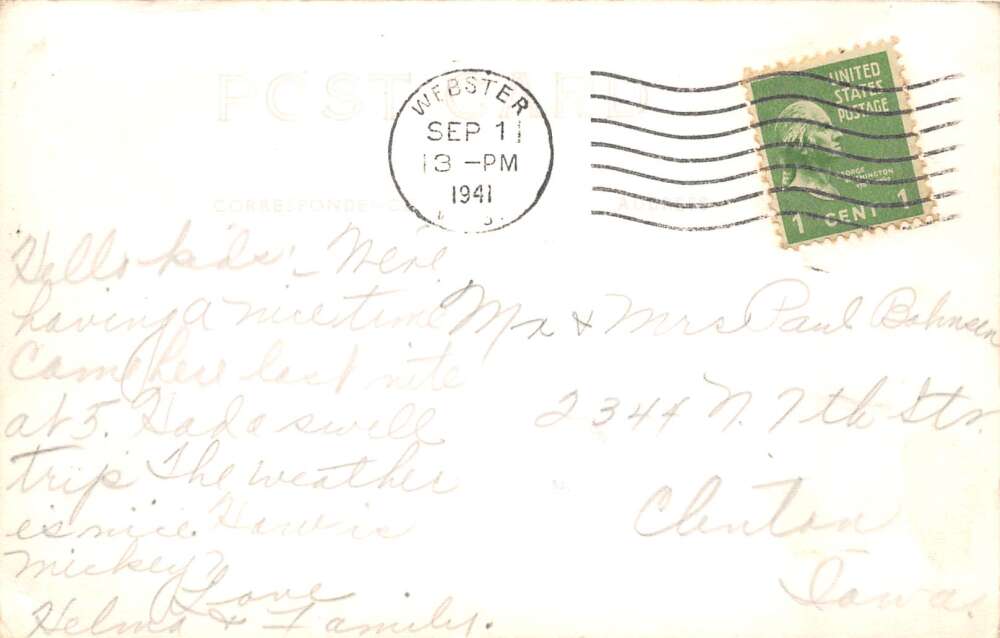 POST CARD
WEBSTER
SEP 11
13 -PM
1941
UNITED
STATES
POSTAGE
GEORGE
WASHINGTON
1 CENT 1
CORRESPONDENCE
ADDRESS
Hello kids:- We're
having a nice time
Came here last nite
at 5. Had a swell
trip The weather
is nice. How is
Mickey?
Love
Helma & Family.
Mr & Mrs Paul Bohnsen
2344 N. 7th Str.
Clinton
Iowa.